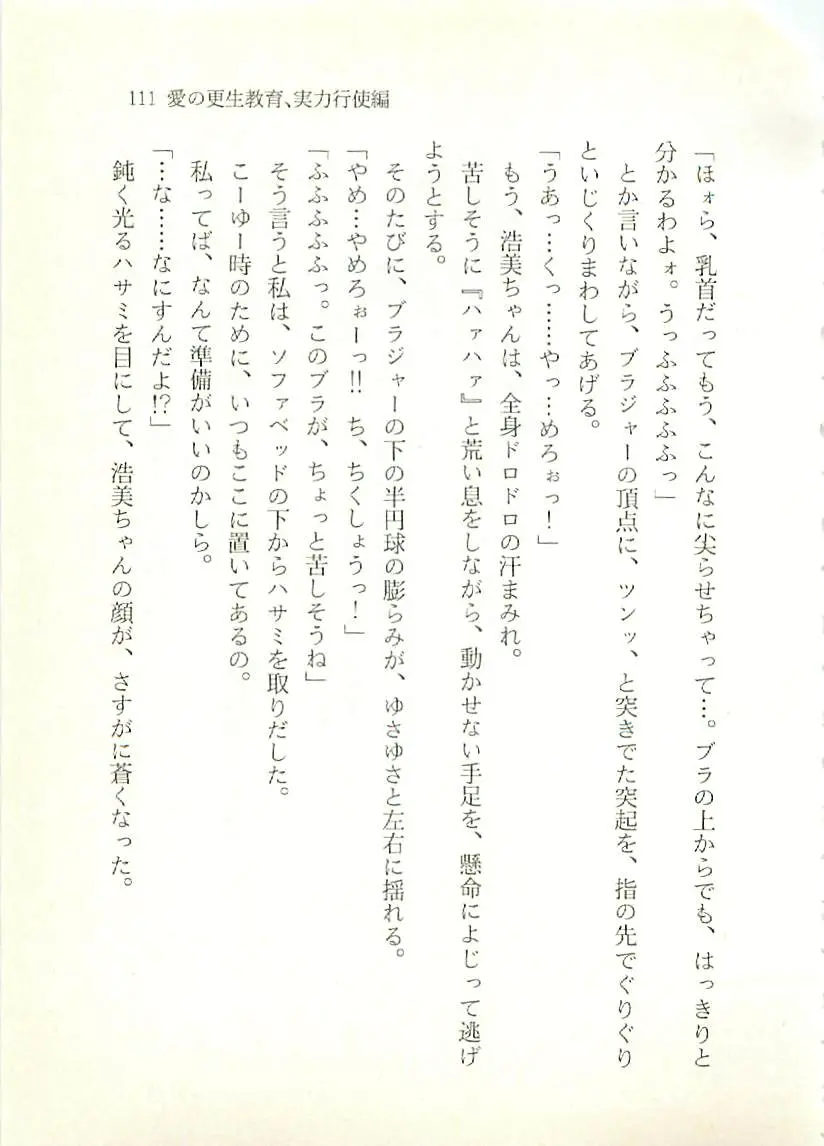 111 愛の更生教育、実力行使編
「ほォら、乳首だってもう、こんなに尖らせちゃって…。ブラの上からでも、はっきりと
分かるわよォ。うっふふふふふっ」
とか言いながら、ブラジャーの頂点に、ツンッ、と突きでた突起を、指の先でぐりぐり
といじくりまわしてあげる。
「うあっ…くっ……やっ…めろぉっ！」
もう、浩美ちゃんは、全身ドロドロの汗まみれ。
苦しそうに『ハァハァ』と荒い息をしながら、動かせない手足を、懸命によじって逃げ
ようとする。
そのたびに、ブラジャーの下の半円球の膨らみが、ゆさゆさと左右に揺れる。
「やめ…やめろぉーっ!! ち、ちくしょうっ！」
「ふふふふふっ。このブラが、ちょっと苦しそうね」
そう言うと私は、ソファベッドの下からハサミを取りだした。
こーゆー時のために、いつもここに置いてあるの。
私ってば、なんて準備がいいのかしら。
「…な……なにすんだよ!?」
鈍く光るハサミを目にして、浩美ちゃんの顔が、さすがに蒼くなった。